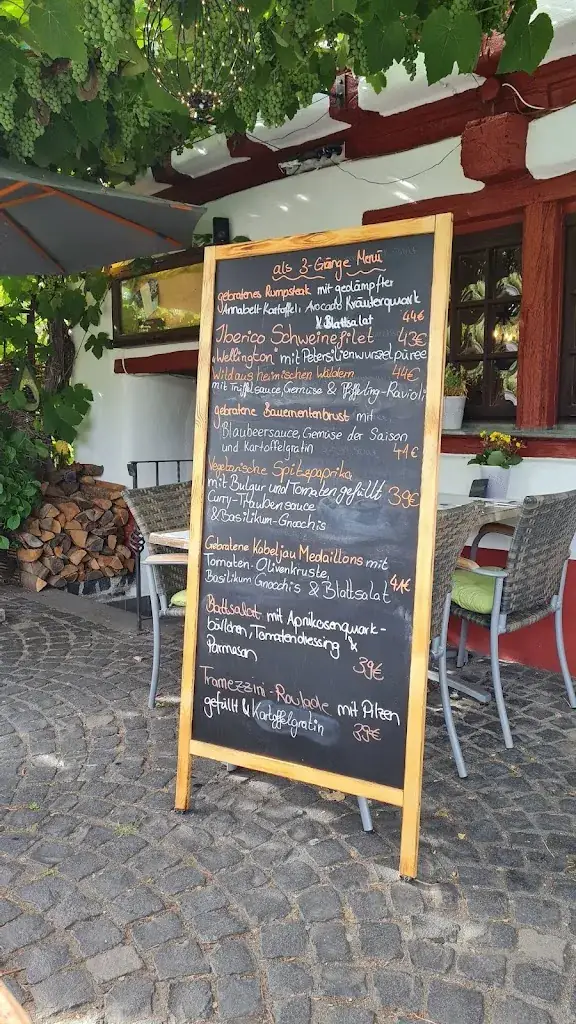 als 3-Gänge Menü
gebratenes Rumpsteak mit gedämpfter
Annabell-Kartoffel, Avocado Kräuterquark
& Blattsalat 44€
Iberico Schweinefilet 43€
"Wellington" mit Petersilienwurzelpüree
Wild aus heimischen Wäldern 44€
mit Trüffelsauce, Gemüse & Pfifferling-Ravioli
gebratene Bauernentenbrust mit
Blaubeersauce, Gemüse der Saison
und Kartoffelgratin 41€
Vegetarische Spitzpaprika
mit Bulgur und Tomaten gefüllt 39€
Curry-Traubensauce
& Basilikum-Gnocchis
Gebratene Kabeljau Medaillons mit
Tomaten-Olivenkruste,
Basilikum Gnocchis & Blattsalat 41€
Blattsalat mit Aprikosenquark-
bällchen, Tomatendressing &
Parmesan
39€
Tramezzini-Roulade mit Pilzen
gefüllt & Kartoffelgratin 39€